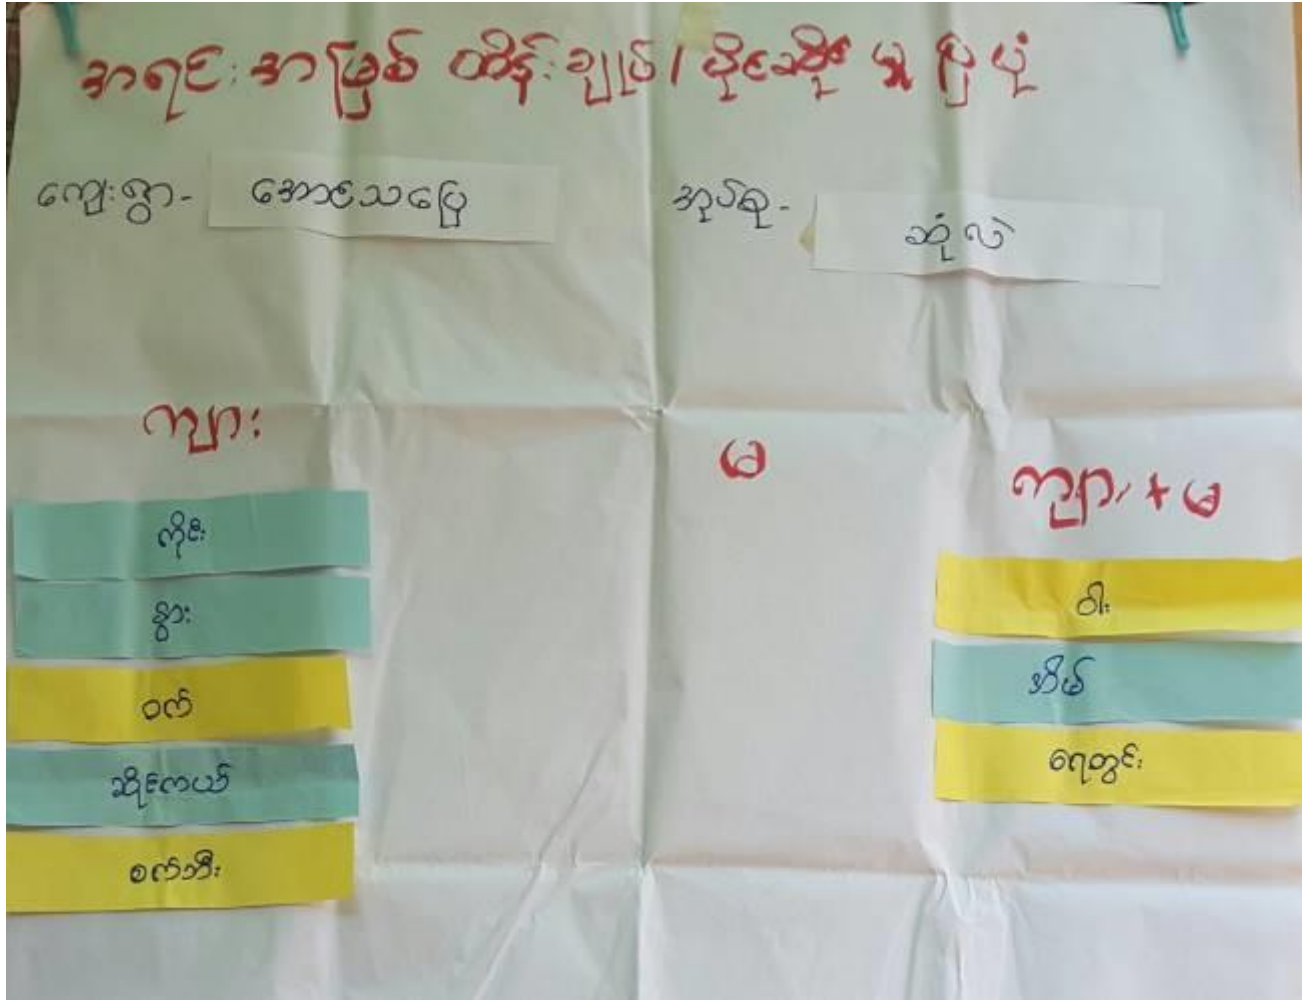 အရင်းအမြစ် ထိန်းချုပ်/ပိုင်ဆိုင်မှုပြပုံ
ကျေးရွာ- အောင်သပြေ အုပ်စု- ဆုံလဲ
ကျား မ ကျား+မ
ကိုင်း
နွား
ဝက်
ဆိုင်ကယ်
စက်ဘီး
ဝါး
အိမ်
ရေတွင်း